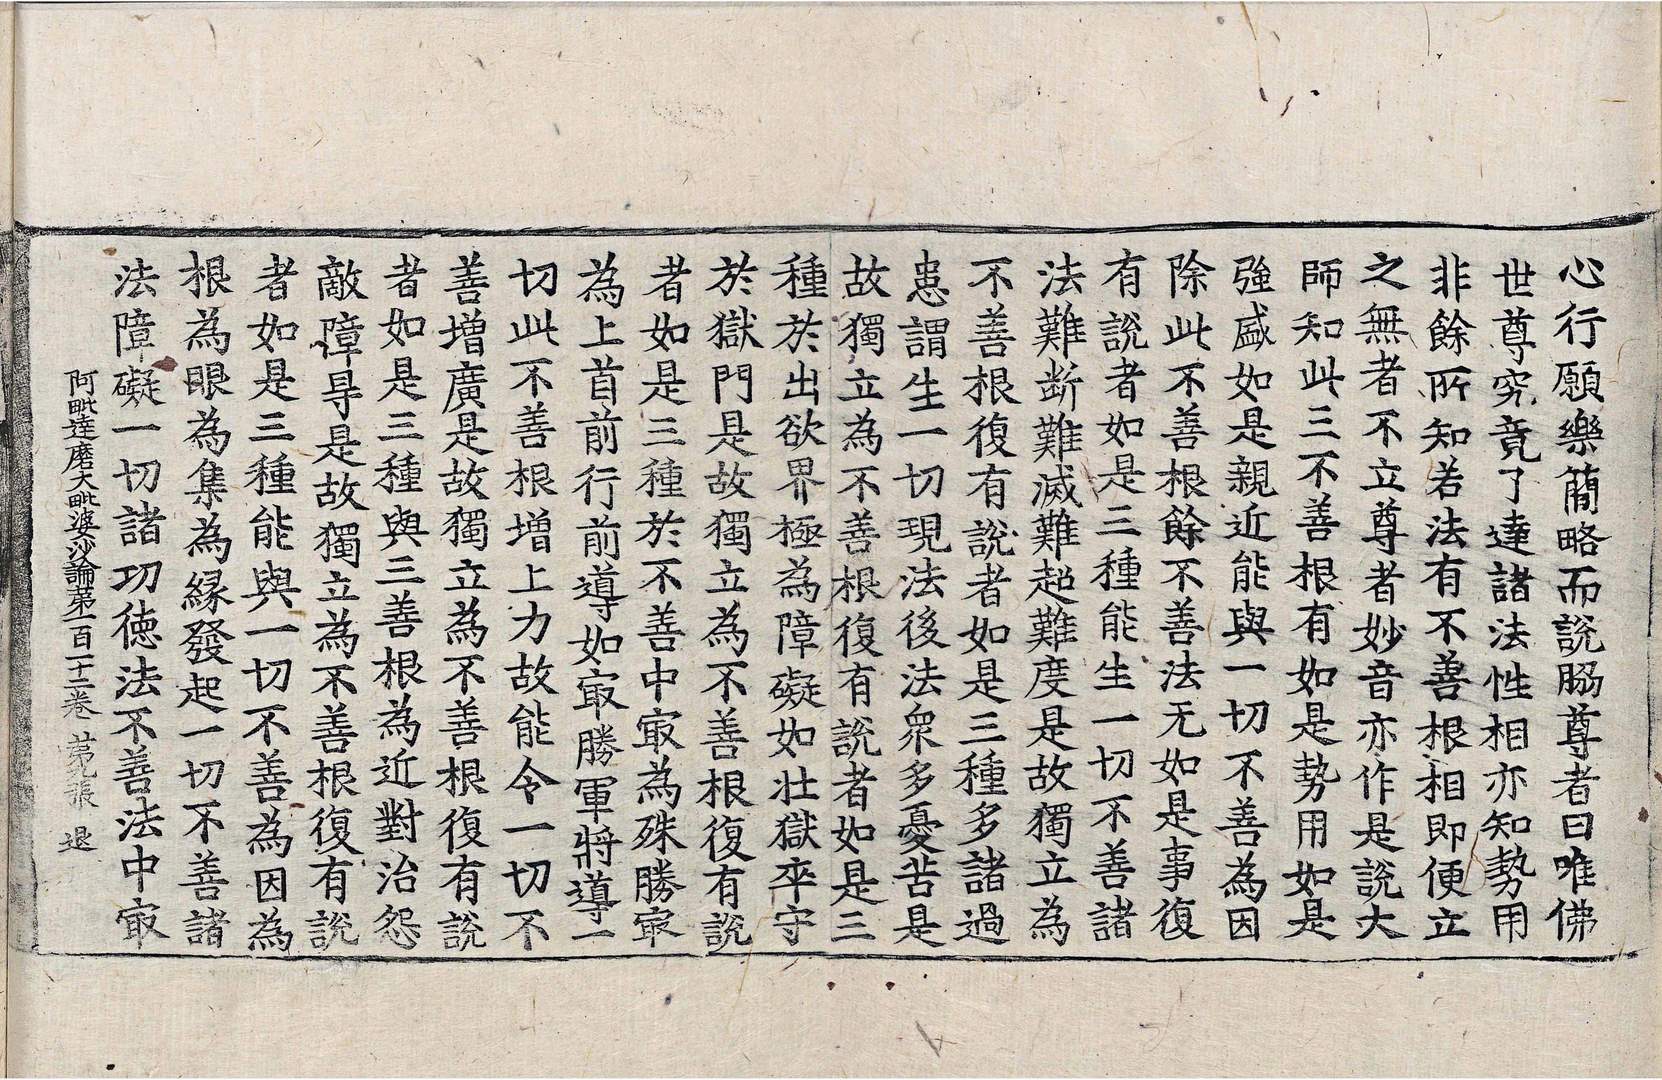 心行願樂簡略而說脇尊者曰唯佛
世尊究竟了達諸法性相亦知勢用
非餘所知若法有不善根相即便立
之無者不立尊者妙音亦作是說大
師知此三不善根有如是勢用如是
強盛如是親近能與一切不善為因
除此不善根餘不善法无如是事復
有說者如是三種能生一切不善諸
法難断難滅難超難度是故獨立為
不善根復有說者如是三種多諸過
患謂生一切現法後法眾多憂苦是
故獨立為不善根復有說者如是三
種於出欲界極為障礙如壯獄卒守
於獄門是故獨立為不善根復有說
者如是三種於不善中㝡為殊勝㝡
為上首前行前導如㝡勝軍將導一
切此不善根增上力故能令一切不
善增廣是故獨立為不善根復有說
者如是三種與三善根為近對治怨
敵障㝵是故獨立為不善根復有說
者如是三種能與一切不善為因為
根為眼為集為縁發起一切不善諸
法障礙一切諸功徳法不善法中㝡
阿毗達磨大毗婆沙論苐一百一十二卷 苐九張 退